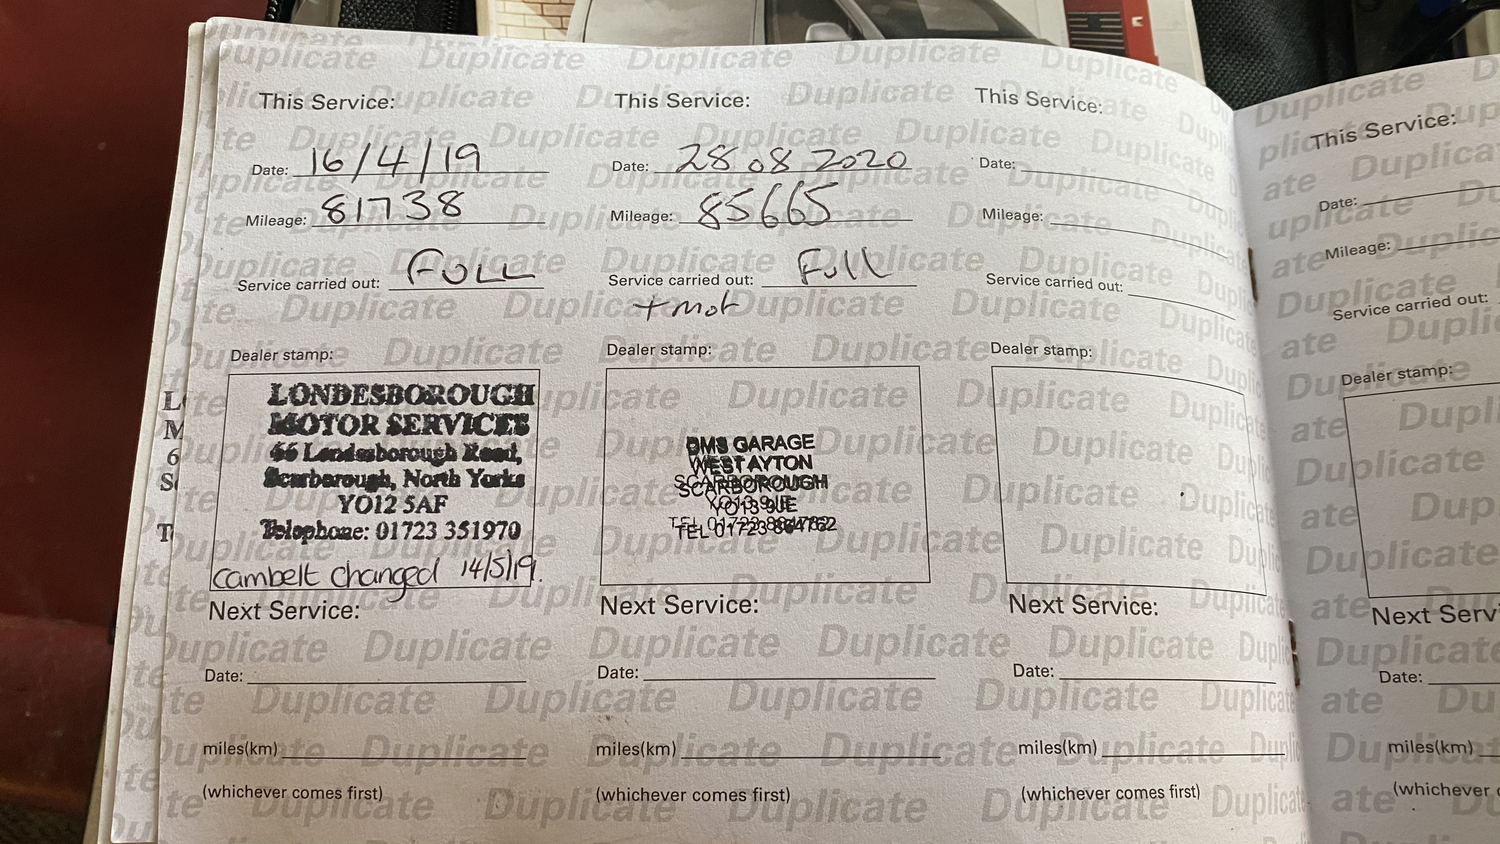 This Service:
Date: 16/4/19
Mileage: 81738
Service carried out: FULL
Dealer stamp:
LONDESBOROUGH
MOTOR SERVICES
66 Londesborough Road,
Scarborough, North Yorks
YO12 5AF
Telephone: 01723 351970
Cambelt changed 14/5/19.
Next Service:
Date:
miles(km)
(whichever comes first)
This Service:
Date: 28 08 2020
Mileage: 85665
Service carried out: Full
+ mot
Dealer stamp:
GARAGE
WEST AYTON
SCARBOROUGH
YO13 9JE
TEL 01723 864762
Next Service:
Date:
miles(km)
(whichever comes first)
This Service:
Date:
Mileage:
Service carried out:
Dealer stamp:
Next Service:
Date:
miles(km)
(whichever comes first)
This Service:
Date:
Mileage:
Service carried out:
Dealer stamp:
Next Serv
Date:
miles(km)
(whichever
Duplicate